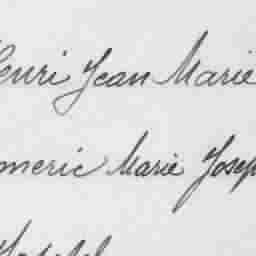 Henri Jean Marie
meric Marie Joseph